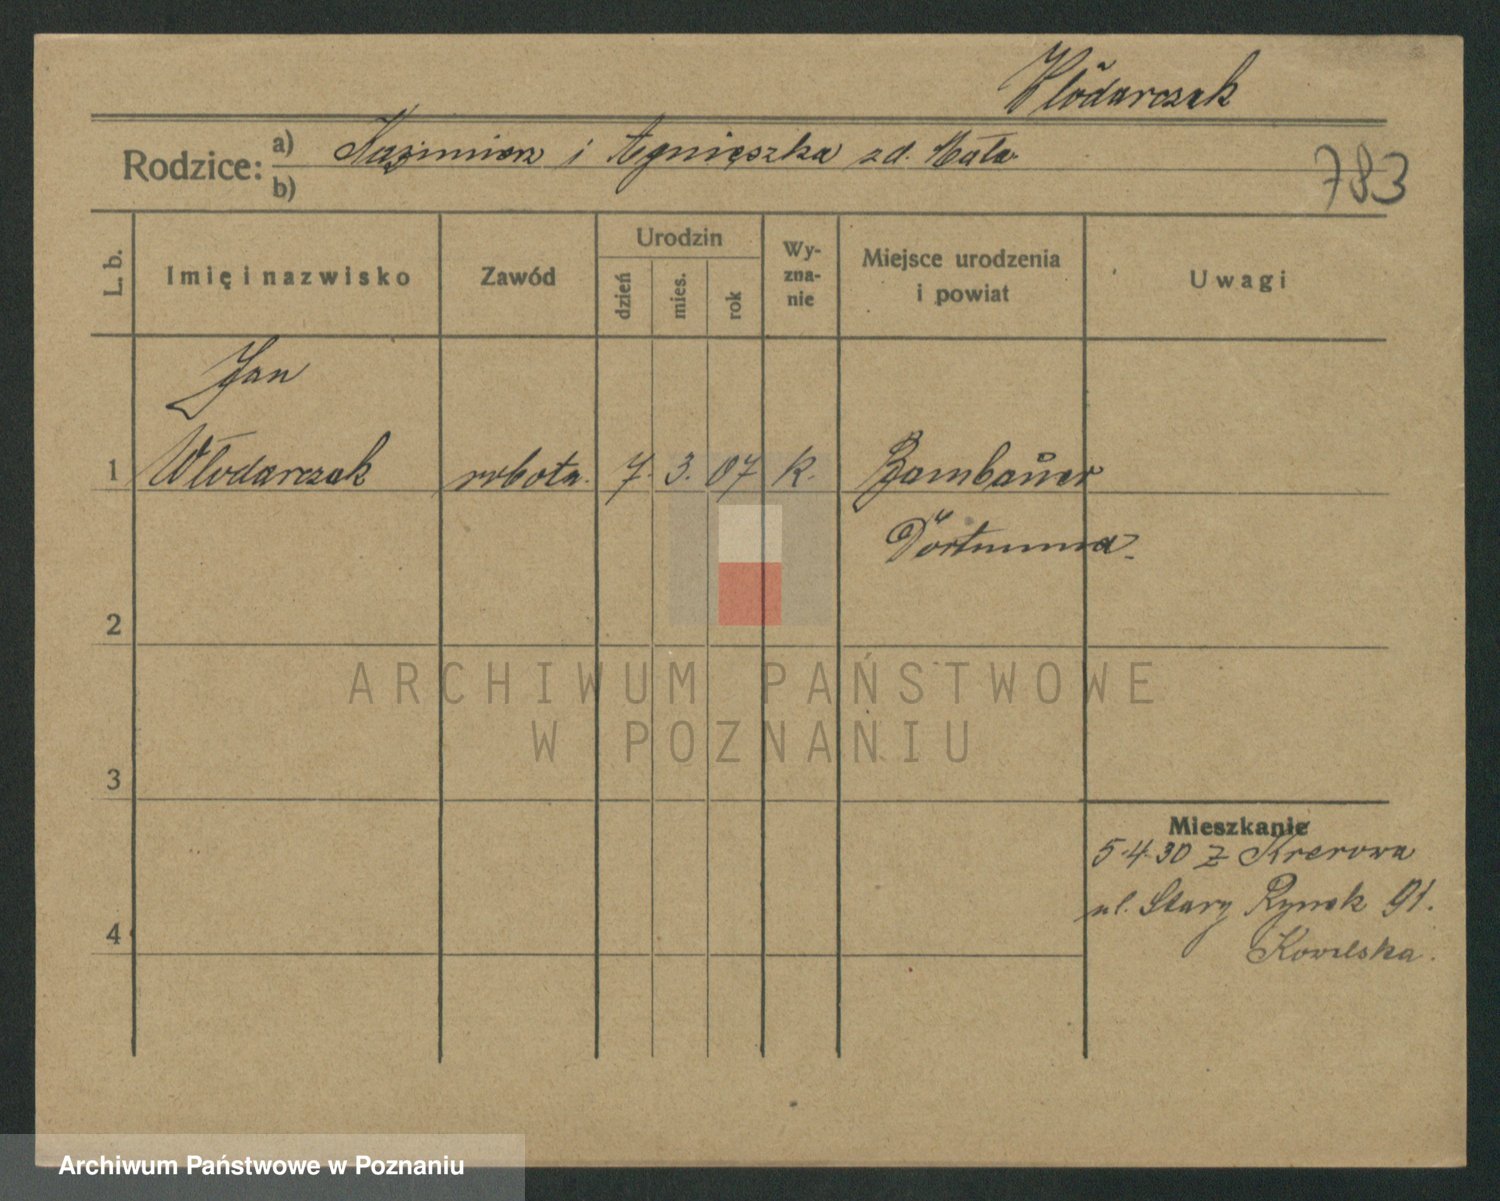 Włodarczak
Rodzice: a) Kazimierz i Agnieszka zd. Mała
b)
783
L. b.
Imię i nazwisko
Zawód
Urodzin
dzień
mies.
rok
Wy-
zna-
nie
Miejsce urodzenia
i powiat
Uwagi
Jan
1 Włodarczak robotn. 7. 3. 07 k.
Dortmund.
2
3
4
Mieszkanie
5.4.30 z Krerowa
ul. Stary Rynek 91.
ARCHIWUM PAŃSTWOWE
W POZNANIU
Archiwum Państwowe w Poznaniu